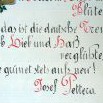 Blüte
das ist die deutsche Treu
Lieb und Haß
verglühte
grünet stets auf's neu!
Josef